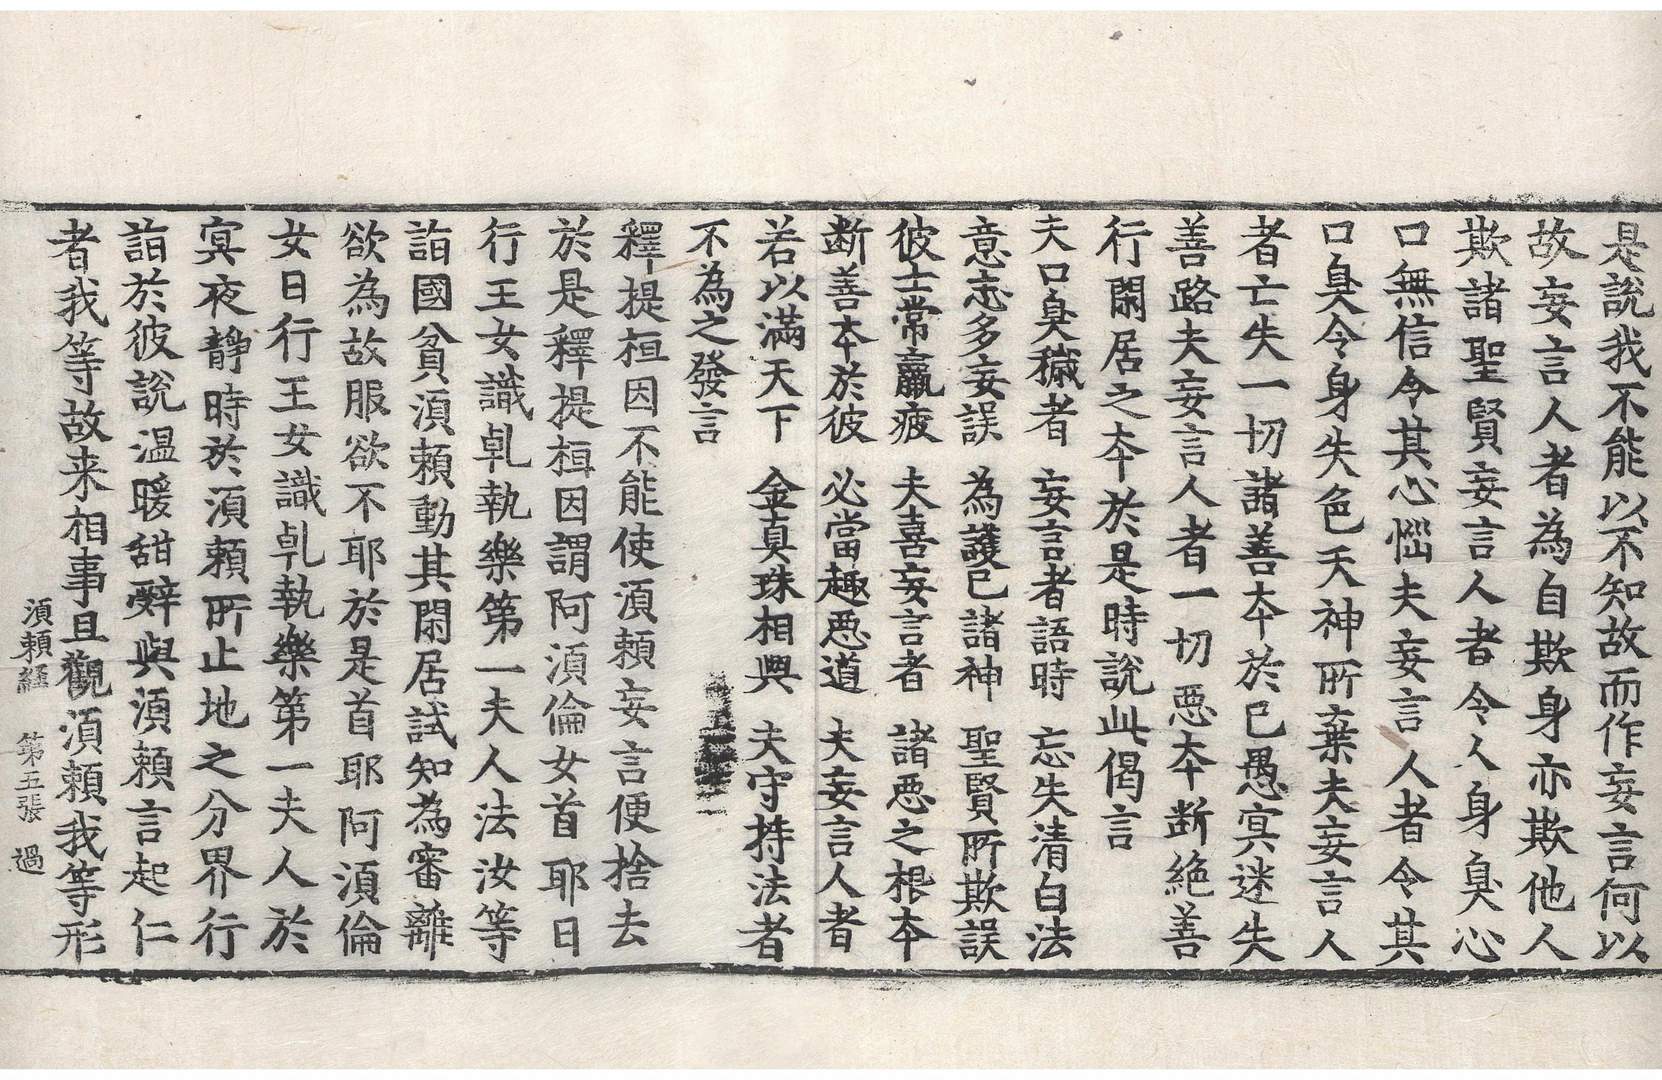 是說我不能以不知故而作妄言何以
故妄言人者為自欺身亦欺他人
欺諸聖賢妄言人者令人身臭心
口無信令其心惱夫妄言人者令其
口臭令身失色天神所棄夫妄言人
者亡失一切諸善本於己愚冥迷失
善路夫妄言人者一切惡本断絶善
行閑居之本於是時說此偈言
夫口臭穢者 妄言者語時 忘失清白法
意志多妄誤 為護已諸神 聖賢所欺誤
彼士常羸疲 夫喜妄言者 諸惡之根本
断善本於彼 必當趣惡道 夫妄言人者
若以滿天下 金真珠相與 夫守持法者
不為之發言
釋提桓因不能使湏頼妄言便捨去
於是釋提桓因謂阿湏倫女首耶日
行王女識乹執樂第一夫人法汝等
詣國貧湏頼動其閑居試知為審離
欲為故服欲不耶於是首耶阿湏倫
女日行王女識乹執樂第一夫人於
冥夜靜時於湏頼所止地之分界行
詣於彼說温暖甜辭與湏頼言起仁
者我等故来相事且觀湏頼我等形
湏頼經 第五張 過